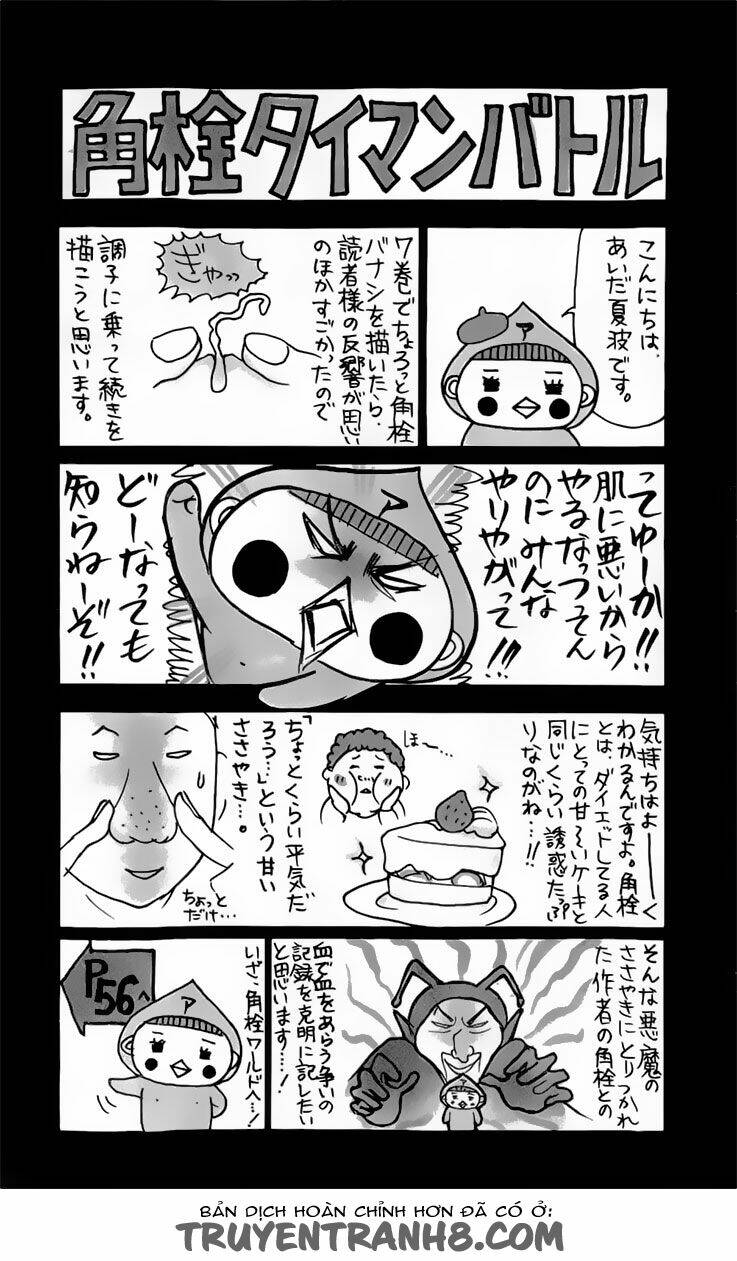 角栓タイマンバトル
こんにちは、
あいだ夏波です。
ア
7巻でちょろっと角栓
バナシを描いたら、
読者様の反響が思い
のほかすごかったので
ぎゃっっ
調子に乗って続きを
描こうと思います。
ってゆーか!!
肌に悪いから
やるなっつってん
のにみんな
やりやがって!!!
ア
どーなっても
知らねーぞ!!
気持ちはよーーく
わかるんですよ。角栓
とは、ダイエットしてる人
にとっての甘〜いケーキと
同じくらい誘惑たっぷ
りなのがね…!!
ほ〜…
「ちょっとくらい平気だ
ろう…」という甘い
ささやき…。
ちょっと
だけ…
そんな悪魔の
ささやきにとりつかれ
た作者の角栓との
血で血をあらう争いの
記録を克明に記したい
と思います…!
いざ、角栓ワールドへ…!
P56へ
ア
BẢN DỊCH HOÀN CHỈNH HƠN ĐÃ CÓ Ở:
TRUYENTRANH8.COM